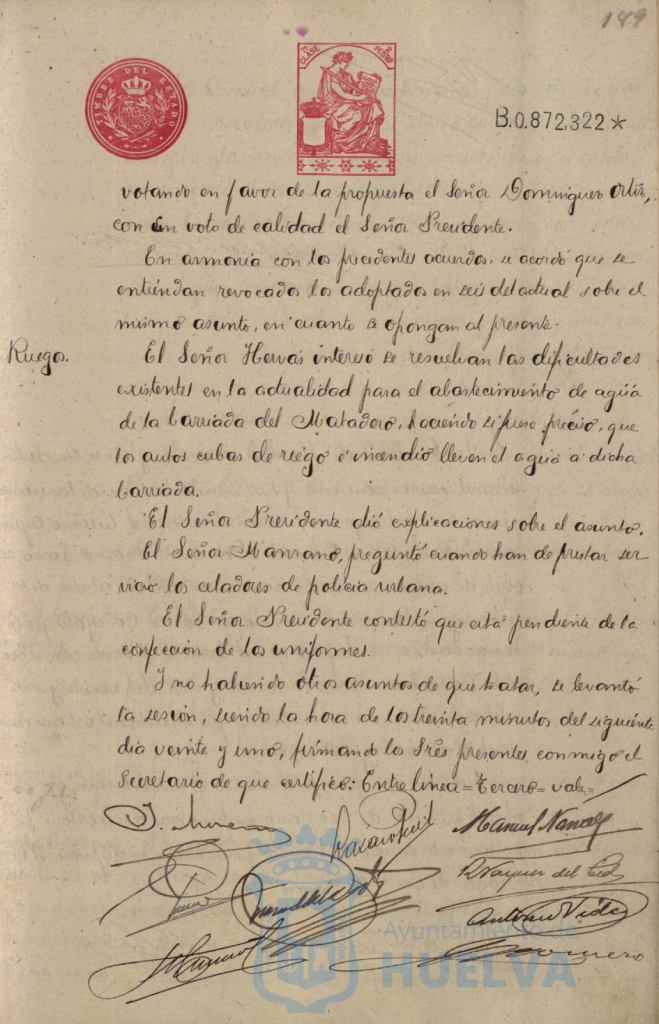 189
TIMBRE DEL ESTADO
7ª CLASE 2 PESETAS
B.0.872,322*
votando en favor de la propuesta el Señor Dominguez Ortiz,
con su voto de calidad el Señor Presidente.
En armonia con los precedentes acuerdos, se acordó que se
entiendan revocados los adoptados en seis del actual sobre el
mismo asunto, en cuanto se opongan al presente.
Ruegos.
El Señor Hervás interesó se resuelvan las dificultades
existentes en la actualidad para el abastecimiento de agua
de la barriada del Matadero, haciendo si fuese préciso, que
los autos cubas de riego é incendio lleven el agua a dicha
barriada.
El Señor Presidente dió explicaciones sobre el asunto.
El Señor Manzano, preguntó cuando han de prestar ser
vicio los celadores de policia urbana.
El Señor Presidente contestó que está pendiente de la
confección de los uniformes.
Y no habiendo otros asuntos de que tratar, se levantó
la sesión, siendo la hora de los treinta minutos del siguiente
dia veinte y uno, firmando los Sres presentes, conmigo el
Secretario de que certifico: Entre linea = tercero = vale =
Manuel
Antonio
Romero
Ayuntamiento de
HUELVA